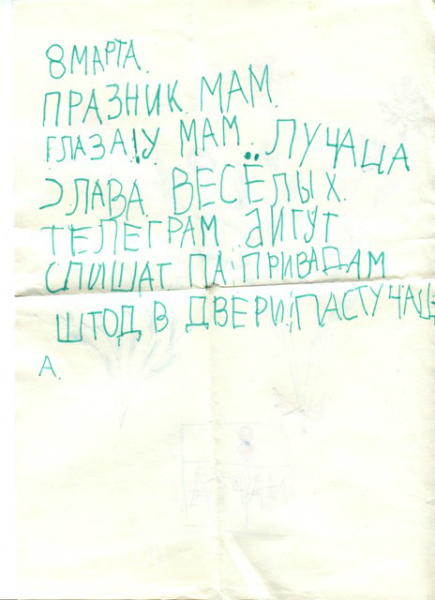 8 МАРТА.
ПРАЗНИК. МАМ.
ГЛАЗА!У МАМ. ЛУЧАЦА
ЭЛАВА. ВЕСЁЛЫХ.
ТЕЛЕГРАМ. ДИГУТ
СПИШАТ ПА ПРИВАДАМ
ШТОД В ДВЕРИ ПАСТУЧАЦ
А.